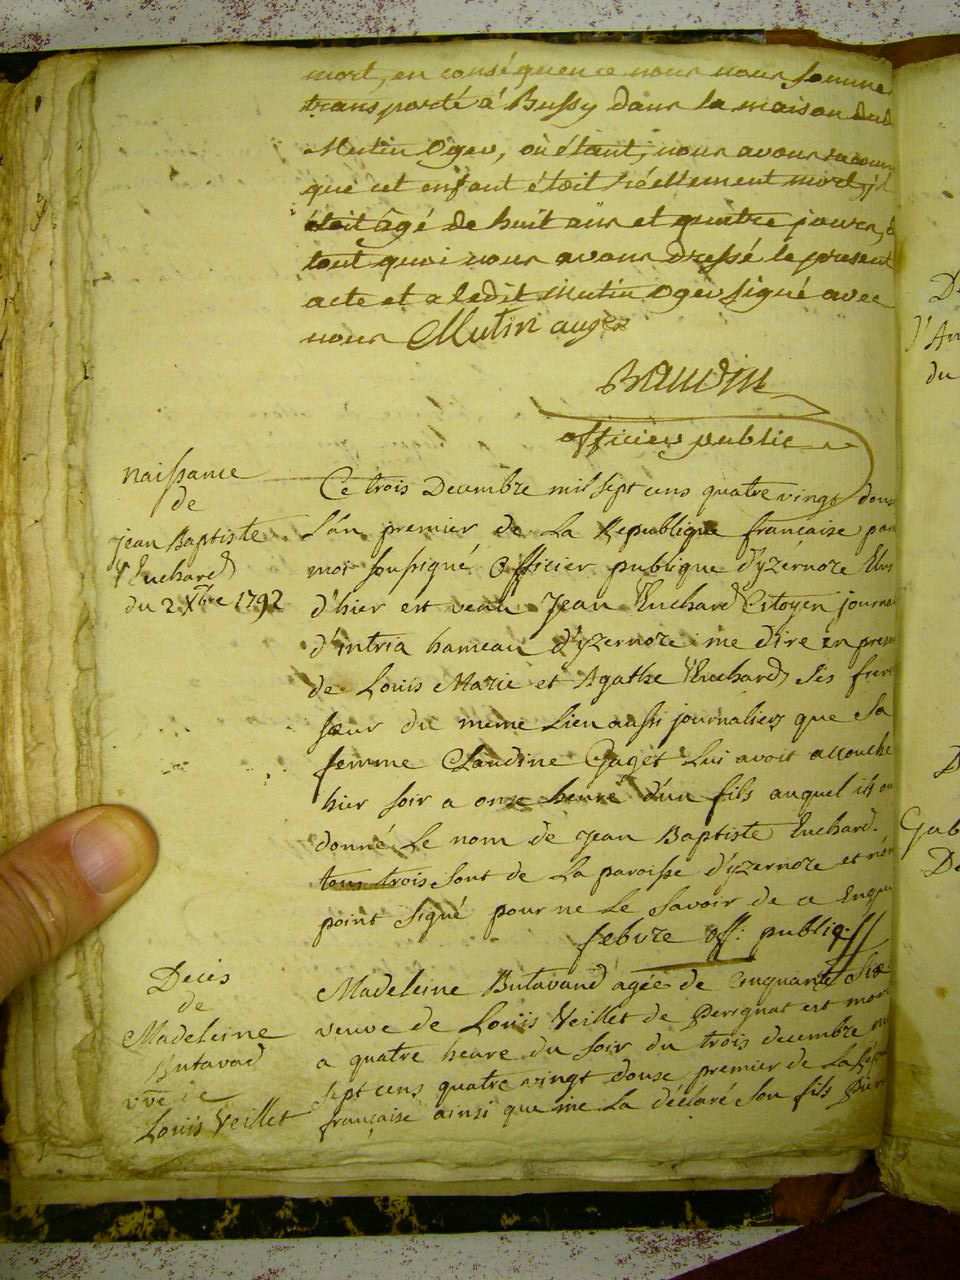 mort, en conséquence nous nous somme
transporté à Bussy dans la maison dud
Mutin Oger, où étant, nous avons reconn
que cet enfant étoit réellement mort, il
étoit âgé de huit ans et quatre jours, d
tout quoi nous avons dressé le present
acte et a ledit Mutin Oger signé avec
nous Mutin auger
Baudin
officier public
naissance
de
jean Baptiste
Euchard
du 2 Xbre 1792
Ce trois Decembre mil sept cens quatre vingt douse
L'an premier de La Republique francaise par
moi soussigné Officier publique d'yzernore
d'hier est venu Jean Euchard Citoyen journa
d'intria hameau d'yzernore me dire en prese
de Louis Marie et Agathe Euchard Ses frere
sœur du meme Lieu aussi journaliers que Sa
femme Claudine Gaget Lui avoit accouché
hier soir a onze heure d'un fils auquel ils on
donné Le nom de Jean Baptiste Euchard.
tous trois sont de La paroisse d'yzernore et n'on
point signé pour ne Le Savoir de ce Enquis
febvre off: publiq.
Décès
de
Madeleine
Butavad
vve de
Louis Veillet
Madeleine Butavand agée de Cinquante Six
veuve de Louis Veillet de Perignat est mort
a quatre heure du soir du trois decembre mil
sept cens quatre vingt douse premier de La Rép
française ainsi que me La déclaré Son fils Pierr
De
d'An
du
D
Gab
De